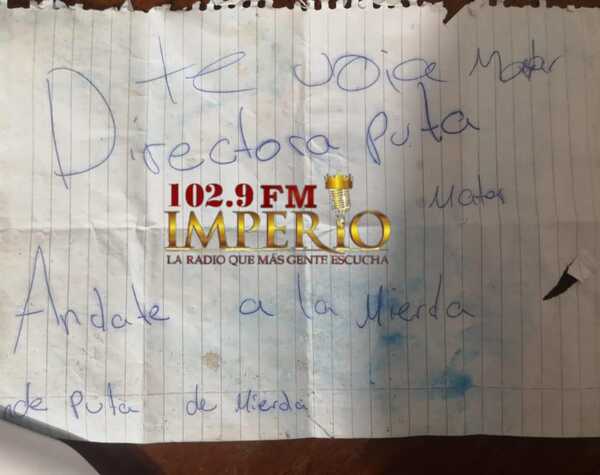 te voia Matar
Directora puta
Matar
102.9 FM
IMPERIO
LA RADIO QUE MÁS GENTE ESCUCHA
Andate a la Mierda
nde puta de Mierda